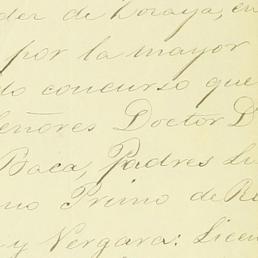 der de Loraya, en
por la mayor
do concurso que
Señores Doctor D
Baca, Padres Lu
no Primo de Ri
y Vergara: Licen